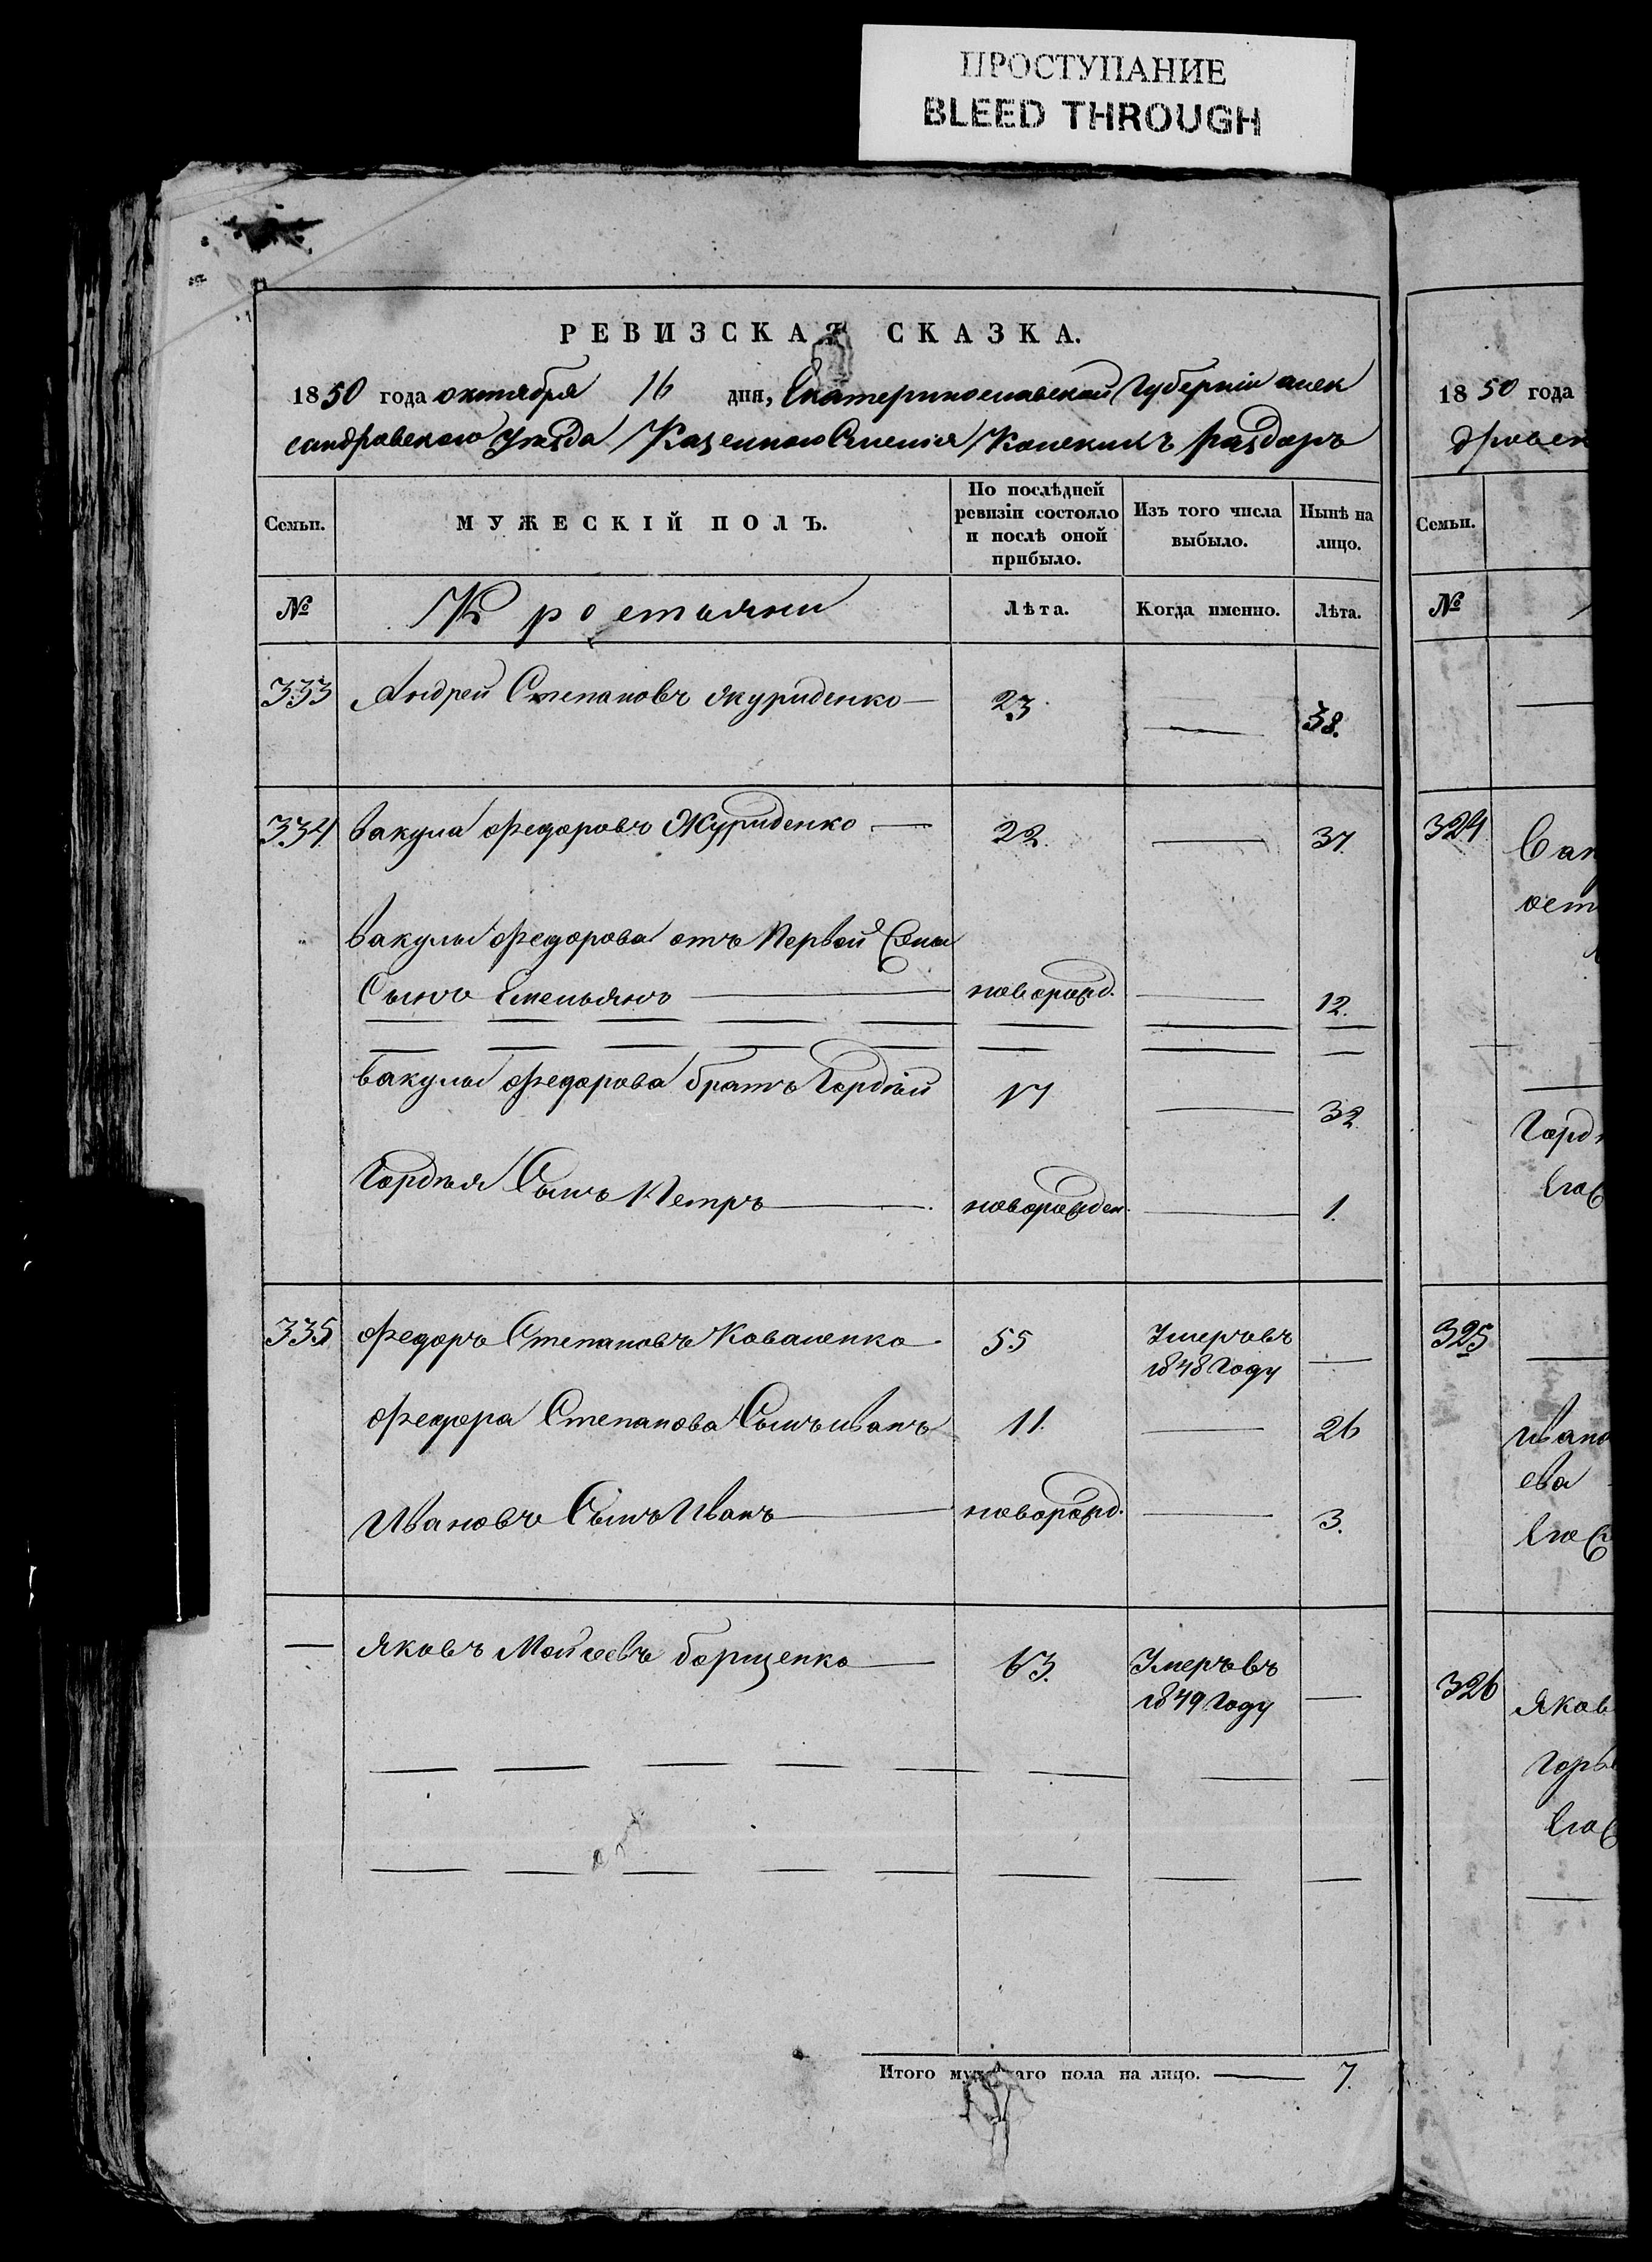 ПРОСТУПАНИЕ
BLEED THROUGH
РЕВИЗСКАЯ СКАЗКА.
1850 года октября 16 дня, Екатеринославской Губернiи алек
сандровского Уезда Казенного Селенiя Конскихъ раздоръ
Семьи. МУЖЕСКIЙ ПОЛЪ. По послѣдней ревизiи состояло и послѣ оной прибыло. Изъ того числа выбыло. Нынѣ на лицо.
№ Крестьяни Лѣта. Когда именно. Лѣта.
333 Андрей Степановъ Журиденко 23 38.
334 Вакула Федоровъ Журиденко 22. 37.
Вакулы Федорова отъ Первой Жены
Сынъ Емельянъ новорожд. 12.
Вакулы Федорова братъ Гордѣй 17 32
Гордѣя Сынъ Петръ новорожден. 1.
335 Федоръ Степановъ Коваленко 55 Умеръ въ
1848 Году
Федора Степанова Сынъ иванъ 11. 26
Ивановъ Сынъ Иванъ новорожд. 3.
Яковъ Мойсеевъ борщенко 63. Умеръ въ
1849 Году
Итого мужескаго пола на лицо. 7.
1850 года
дровск
Семьи.
№
324
Гордѣ
325
Ивана
ева
326 Яков